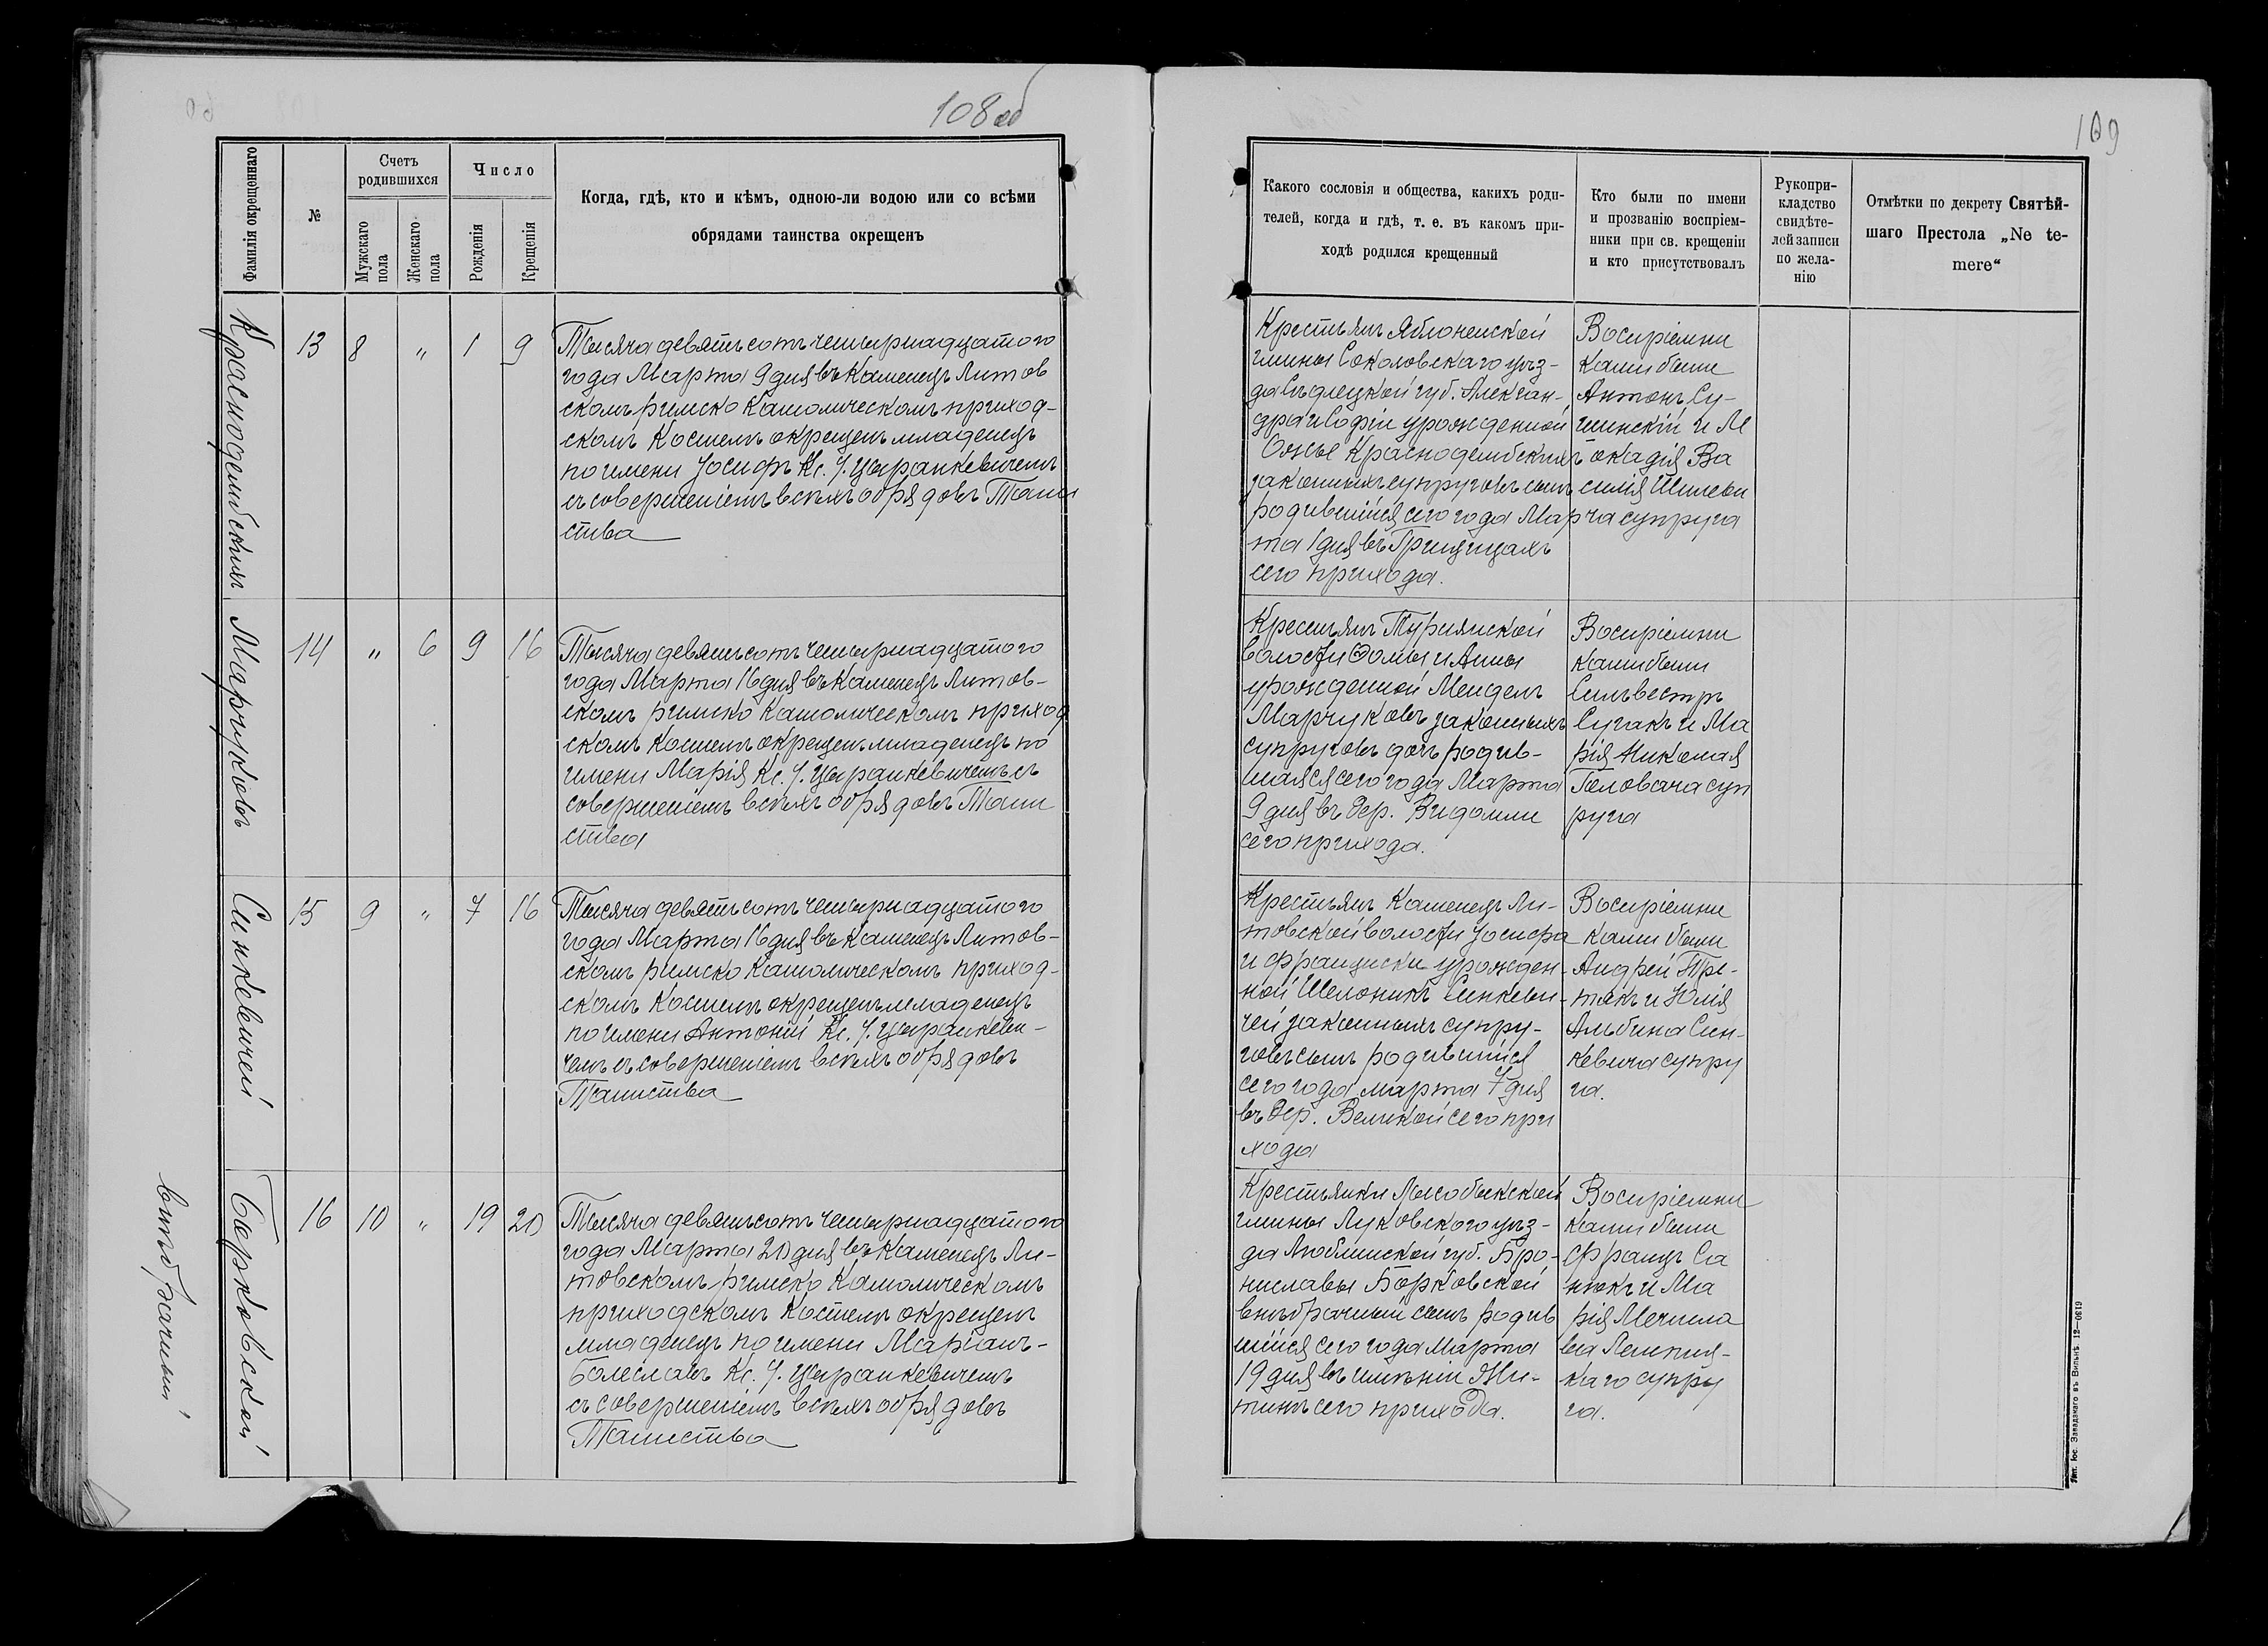 108 об
Фамилія окрещеннаго
№
Счетъ родившихся
Мужскаго пола
Женскаго пола
Число
Рожденія
Крещенія
Когда, гдѣ, кто и кѣмъ, одною-ли водою или со всѣми
обрядами таинства окрещенъ
Краснодембскихъ
13 8 " 1 9
Тысяча девятьсотъ четырнадцатого
года Марта 9 дня въ Каменецъ Литов
скомъ римско Католическомъ приход-
скомъ Костелѣ окрещенъ младенецъ
по имени Іосифъ Кс. І. Цыранкевичемъ
съ совершеніемъ всѣхъ обрядовъ Таин
ства
Марчуковъ
14 " 6 9 16
Тысяча девятьсотъ четырнадцатого
года Марта 16 дня въ Каменецъ Литов-
скомъ римско Католическомъ приход
скомъ костелѣ окрещенъ младенецъ по
имени Марія Кс. І. Цыранкевичемъ съ
совершеніемъ всѣхъ обрядовъ Таин
ства
Синкевичей
15 9 " 7 16
Тысяча девятьсотъ четырнадцатого
года Марта 16 дня въ Каменецъ Литов-
скомъ римско Католическомъ приход-
скомъ Костелѣ окрещенъ младенецъ
по имени Антоній Кс. І. Цыранкеви-
чемъ съ совершеніемъ всѣхъ обрядовъ
Таинства
Борковской
внѣбрачный
16 10 " 19 20
Тысяча девятьсотъ четырнадцатого
года Марта 20 дня въ Каменецъ Ли-
товскомъ римско Католическомъ
приходскомъ Костелѣ окрещенъ
младенецъ по имени Маріанъ-
Болеславъ Кс. І. Цыранкевичемъ
съ совершеніемъ всѣхъ обрядовъ
Таинства
109
Какого сословія и общества, какихъ роди-
телей, когда и гдѣ, т. е. въ какомъ при-
ходѣ родился крещенный
Кто были по имени
и прозванію воспріем-
ники при св. крещеніи
и кто присутствовалъ
Рукопри-
кладство
свидѣте-
лей записи
по жела-
нію
Отмѣтки по декрету Святѣй-
шаго Престола „Ne te-
mere“
Крестьянъ Яблоненской
гмины Соколовскаго уѣз-
да Сѣдлецкой губ. Алексан-
дра и Софіи урожденной
Ожье Краснодембскихъ
законныхъ супруговъ сынъ
родившійся сего года Мар
та 1 дня въ Грицицахъ
сего прихода.
Воспріемни
ками были
Антонъ Су-
шинскій и Л
окадія Ва
силія Шилеви
ча супруга
Крестьянъ Турнянской
волости Ѳомы и Анны
урожденной Мендель
Марчуковъ законныхъ
супруговъ дочь родив-
шаяся сего года Марта
9 дня въ дер. Видомли
сего прихода.
Воспріемни
ками были
Сильвестръ
Сугакъ и Ма
рія Николая
Головача суп
руга
Крестьянъ Каменецъ Ли-
товской волости Іосифа
и Франциски урожден-
ной Шелоникъ Синкеви-
чей законныхъ супру-
говъ сынъ родившійся
сего года марта 7 дня
въ дер. Великой сего при
хода
Воспріемни
ками были
Андрей Тре-
тякъ и Юлія
Альбина Син-
кевича супру
га.
Крестьянки Лысобыкской
гмины Луковского уѣз-
да Люблинской губ. Бро-
ниславы Борковской
внѣбрачный сынъ родив
шійся сего года Марта
19 дня въ имѣніи Жи-
тинъ сего прихода.
Воспріемни
ками были
Францъ Са
нюкъ и Ма
рія Мечисла
ва
каго супру
га.
Тип. Іос. Завадзкаго въ Вильнѣ. 12—0619